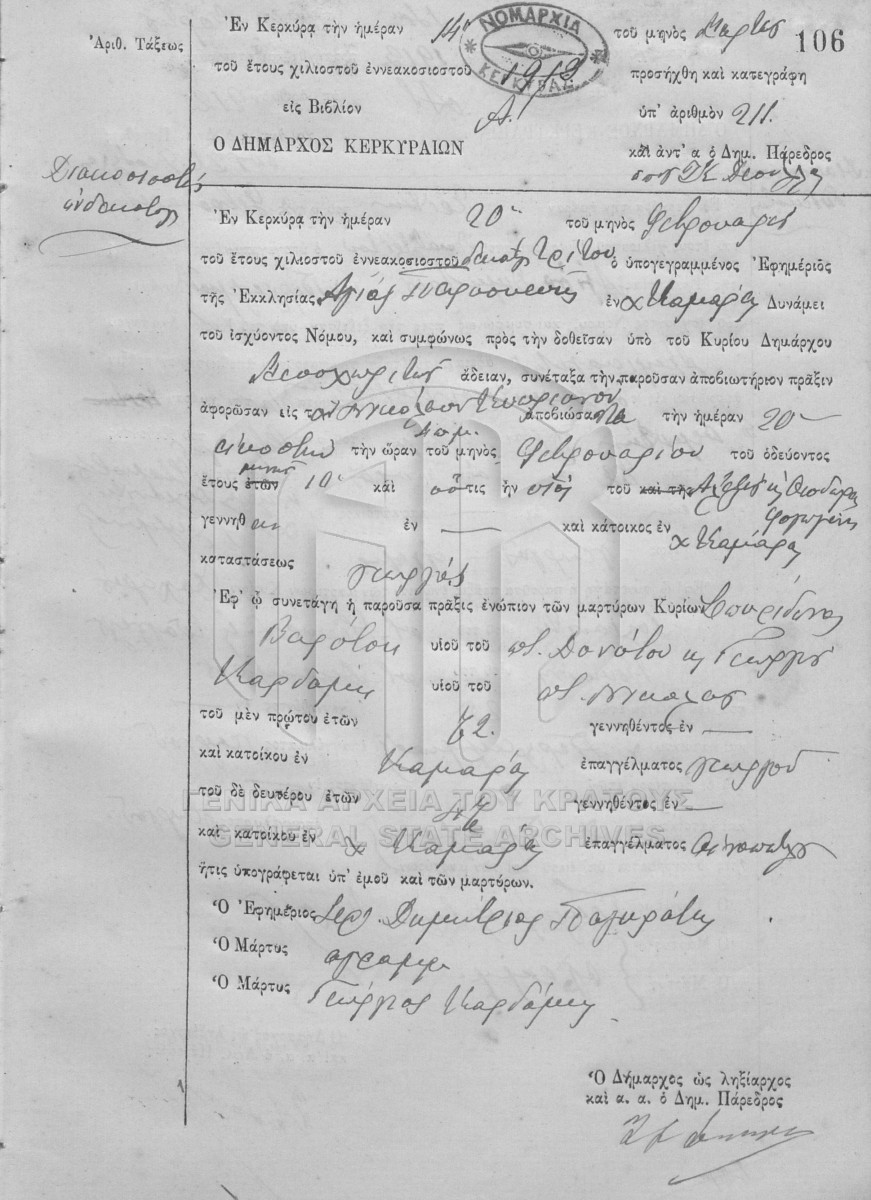 Ἀριθ. Τάξεως
Ἐν Κερκύρᾳ τὴν ἡμέραν 14 τοῦ μηνὸς Μαρτίου 106
ΝΟΜΑΡΧΙΑ ΚΕΡΚΥΡΑΣ
τοῦ ἔτους χιλιοστοῦ ἐννεακοσιοστοῦ 1913 προσήχθη καὶ κατεγράφη
εἰς Βιβλίον Α. ὑπ' ἀριθμὸν 211.
Ὁ ΔΗΜΑΡΧΟΣ ΚΕΡΚΥΡΑΙΩΝ καὶ ἀντ' α ὁ Δημ. Πάρεδρος
Διακοσιοστὴ
ἑνδεκάτη
Ἐν Κερκύρᾳ τὴν ἡμέραν 20 τοῦ μηνὸς Φεβρουαρίου
τοῦ ἔτους χιλιοστοῦ ἐννεακοσιοστοῦ δεκάτου τρίτου ὁ ὑπογεγραμμένος Ἐφημέριος
τῆς Ἐκκλησίας Ἁγίας Παρασκευῆς ἐν χ Καμάρα Δυνάμει
τοῦ ἰσχύοντος Νόμου, καὶ συμφώνως πρὸς τὴν δοθεῖσαν ὑπὸ τοῦ Κυρίου Δημάρχου
Μεσοχωριτῶν ἄδειαν, συνέταξα τὴν παροῦσαν ἀποβιωτήριον πρᾶξιν
ἀφορῶσαν εἰς τὸν Νικόλαον ἀποβιώσαντα τὴν ἡμέραν 20
εἰκοστὴν τὴν ὥραν 4 π.μ. τοῦ μηνὸς Φεβρουαρίου τοῦ ὁδεύοντος
ἔτους ἐτῶν μηνῶν 10 καὶ οὗτις ἦν υἱὸς τοῦ καὶ τῆς
γεννηθ ἐν — καὶ κάτοικος ἐν χ Καμάρα
καταστάσεως γεωργός
Ἐφ' ᾧ συνετάγη ἡ παροῦσα πρᾶξις ἐνώπιον τῶν μαρτύρων Κυρίων Σπυρίδωνος
Βαρότση υἱοῦ τοῦ ποτ. Δονάτου κ Γεωργίου
Καρδάμη υἱοῦ τοῦ ποτ. Νικολάου
τοῦ μὲν πρώτου ἐτῶν 62. γεννηθέντος ἐν —
καὶ κατοίκου ἐν Καμάρα ἐπαγγέλματος γεωργοῦ
τοῦ δὲ δευτέρου ἐτῶν γεννηθέντος ἐν —
καὶ κατοίκου ἐν χ Καμάρα ἐπαγγέλματος
ἥτις ὑπογράφεται ὑπ' ἐμοῦ καὶ τῶν μαρτύρων.
Ὁ Ἐφημέριος Ἱερ. Δημήτριος Παγκράτης
Ὁ Μάρτυς αγραμμ
Ὁ Μάρτυς Γεώργιος Καρδάμης
Ὁ Δήμαρχος ὡς ληξίαρχος
καὶ α. α. ὁ Δημ. Πάρεδρος
ΓΕΝΙΚΑ ΑΡΧΕΙΑ ΤΟΥ ΚΡΑΤΟΥΣ
GENERAL STATE ARCHIVES